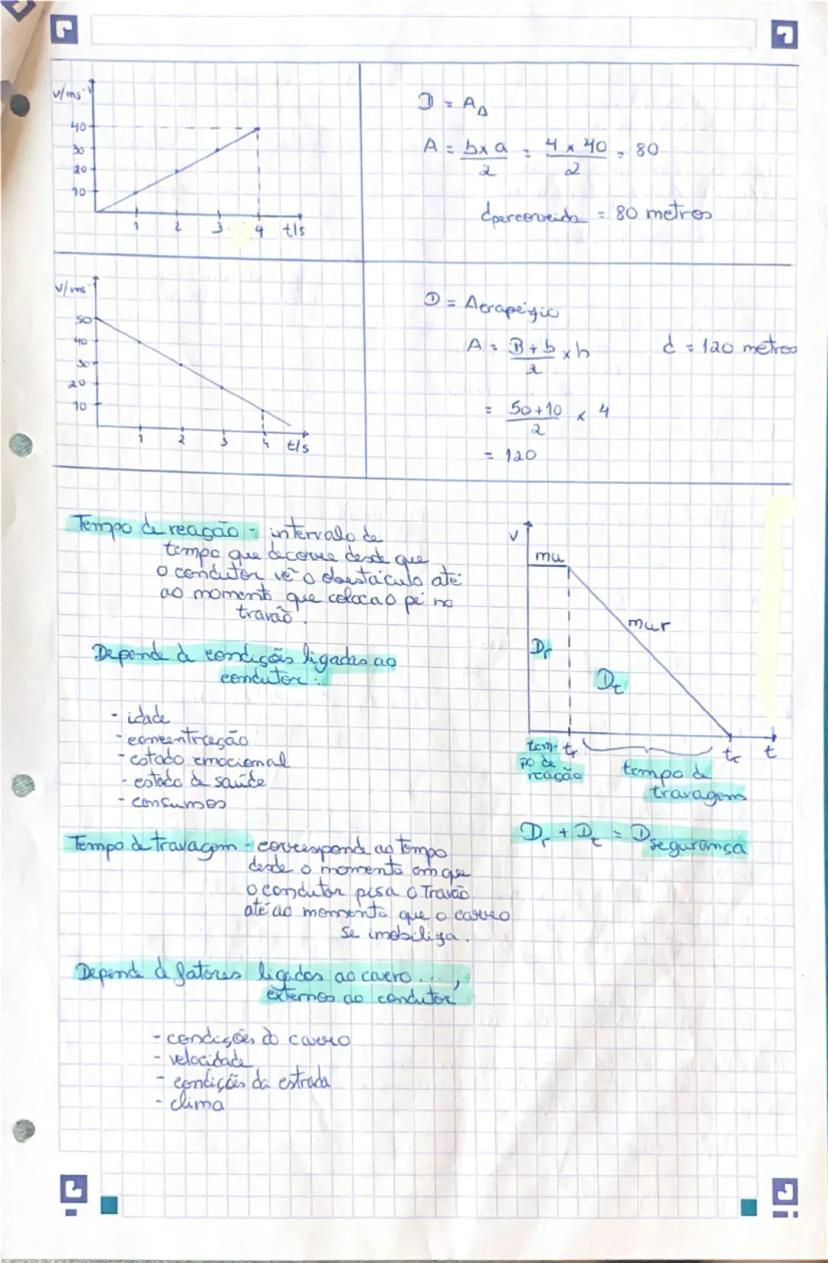 v/ms⁻¹
40
30
20
10
1 2 3 4 t/s
D = A△
A = b x a / 2 = 4 x 40 / 2 = 80
dpercorrida = 80 metros
v/ms⁻¹
50
40
30
20
10
1 2 3 4 t/s
D = Atrapézio
A = B + b / 2 x h
d = 120 metros
= 50+10 / 2 x 4
= 120
Tempo de reação - intervalo de
tempo que decorre desde que
o condutor vê o obstáculo até
ao momento que coloca o pé no
travão.
Depende de condições ligadas ao
condutor:
- idade
- concentração
- estado emocional
- estado de saúde
- consumos
v
mu
mur
Dr
Dt
tem- tr
po de
reação
tempo de
travagem
tt
t
Dr + Dt = D segurança
Tempo de travagem - corresponde ao tempo
desde o momento em que
o condutor pisa o travão
até ao momento que o carro
se imobiliza.
Depende de fatores ligados ao carro ...,
externos ao condutor
- condições do carro
- velocidade
- condições da estrada
- clima